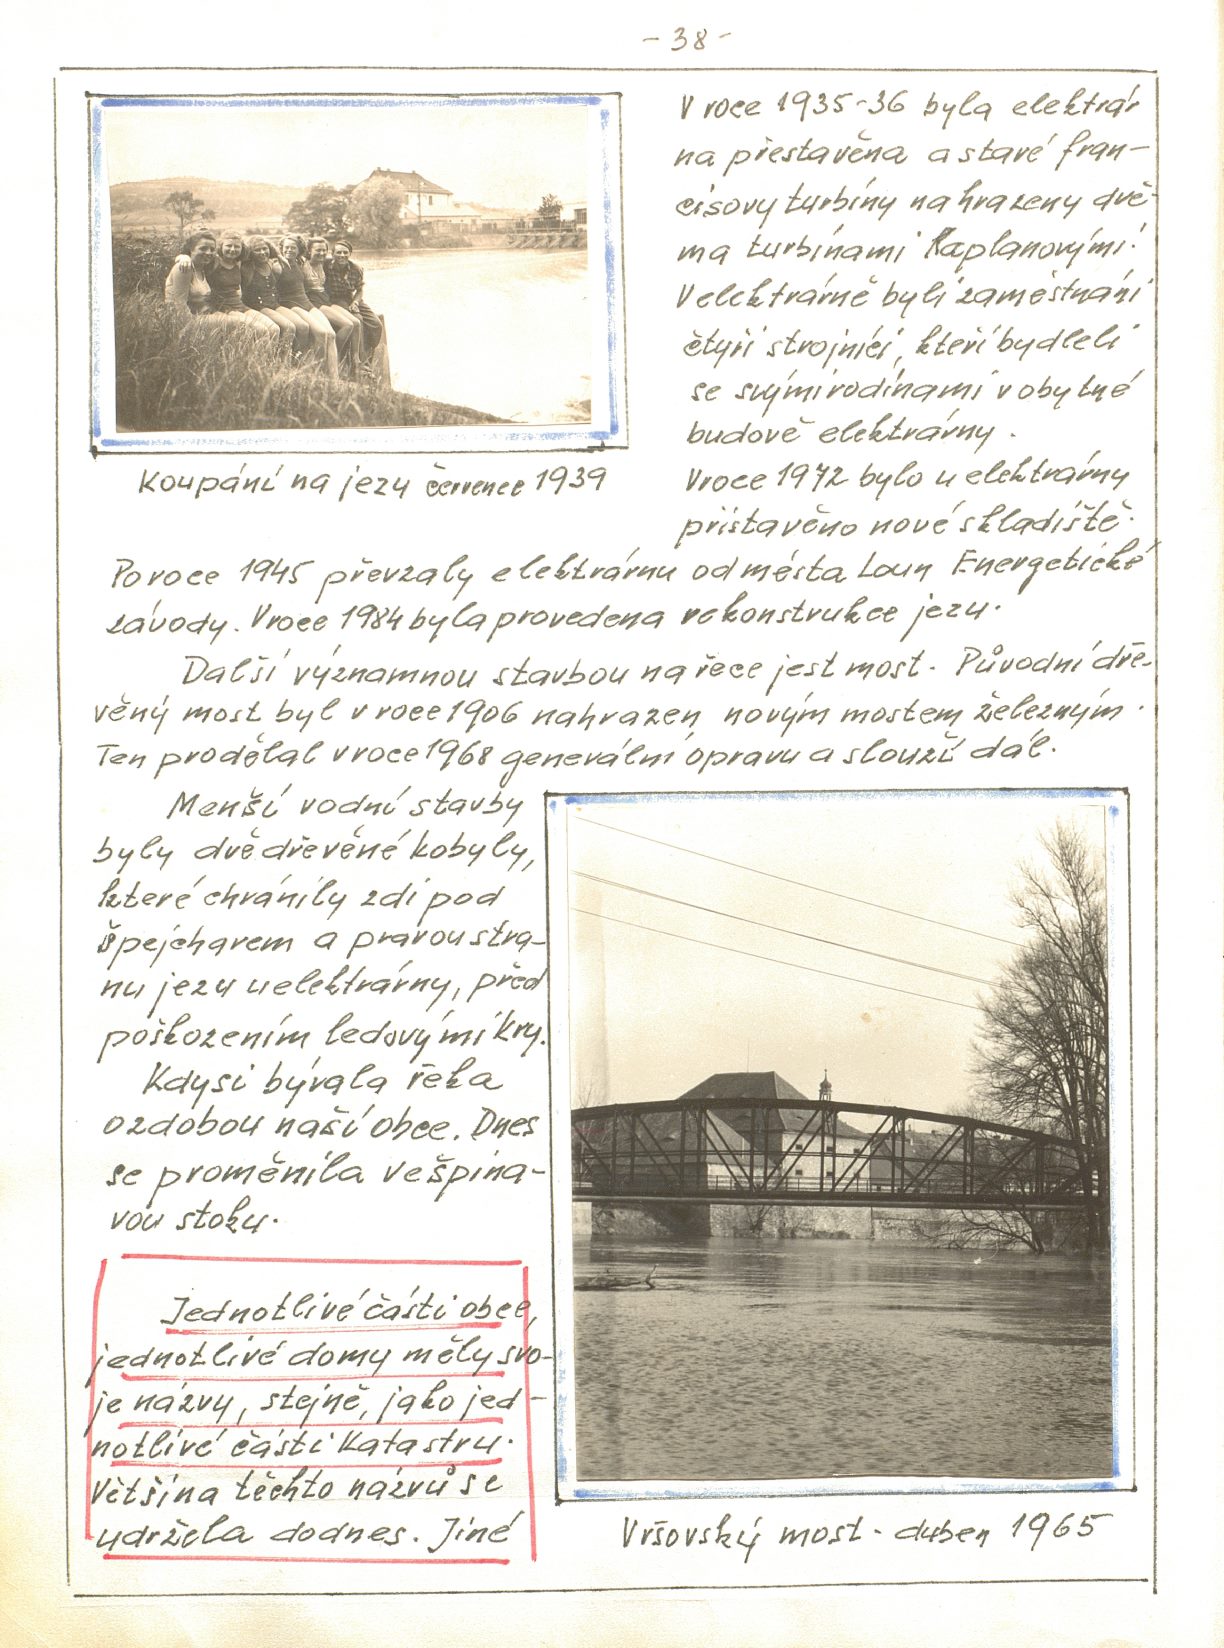 - 38 -
V roce 1935-36 byla elektrár
na přestavěna a staré fran-
cisovy turbíny nahrazeny dvě-
ma turbínami Kaplanovými.
V elektrárně byli zaměstnáni
čtyři strojníci, kteří bydleli
se svými rodinami v obytné
budově elektrárny.
V roce 1972 bylo u elektrárny
přistavěno nové skladiště.
Koupání na jezu červenec 1939
Po roce 1945 převzaly elektrárnu od města Loun Energetické
závody. V roce 1984 byla provedena rekonstrukce jezu.
Další významnou stavbou na řece jest most. Původní dře-
věný most byl v roce 1906 nahrazen novým mostem železným.
Ten prodělal v roce 1968 generální opravu a slouží dál.
Menší vodní stavby
byly dvě dřevěné kobyly,
které chránily zdi pod
špejcharem a pravou stra-
nu jezu u elektrárny, před
poškozením ledovými kry.
Kdysi bývala řeka
ozdobou naší obce. Dnes
se proměnila ve špina-
vou stoku.
Jednotlivé části obce,
jednotlivé domy měly svo-
je názvy, stejně, jako jed-
notlivé části katastru.
Většina těchto názvů se
udržela dodnes. Jiné
Vršovský most - duben 1965